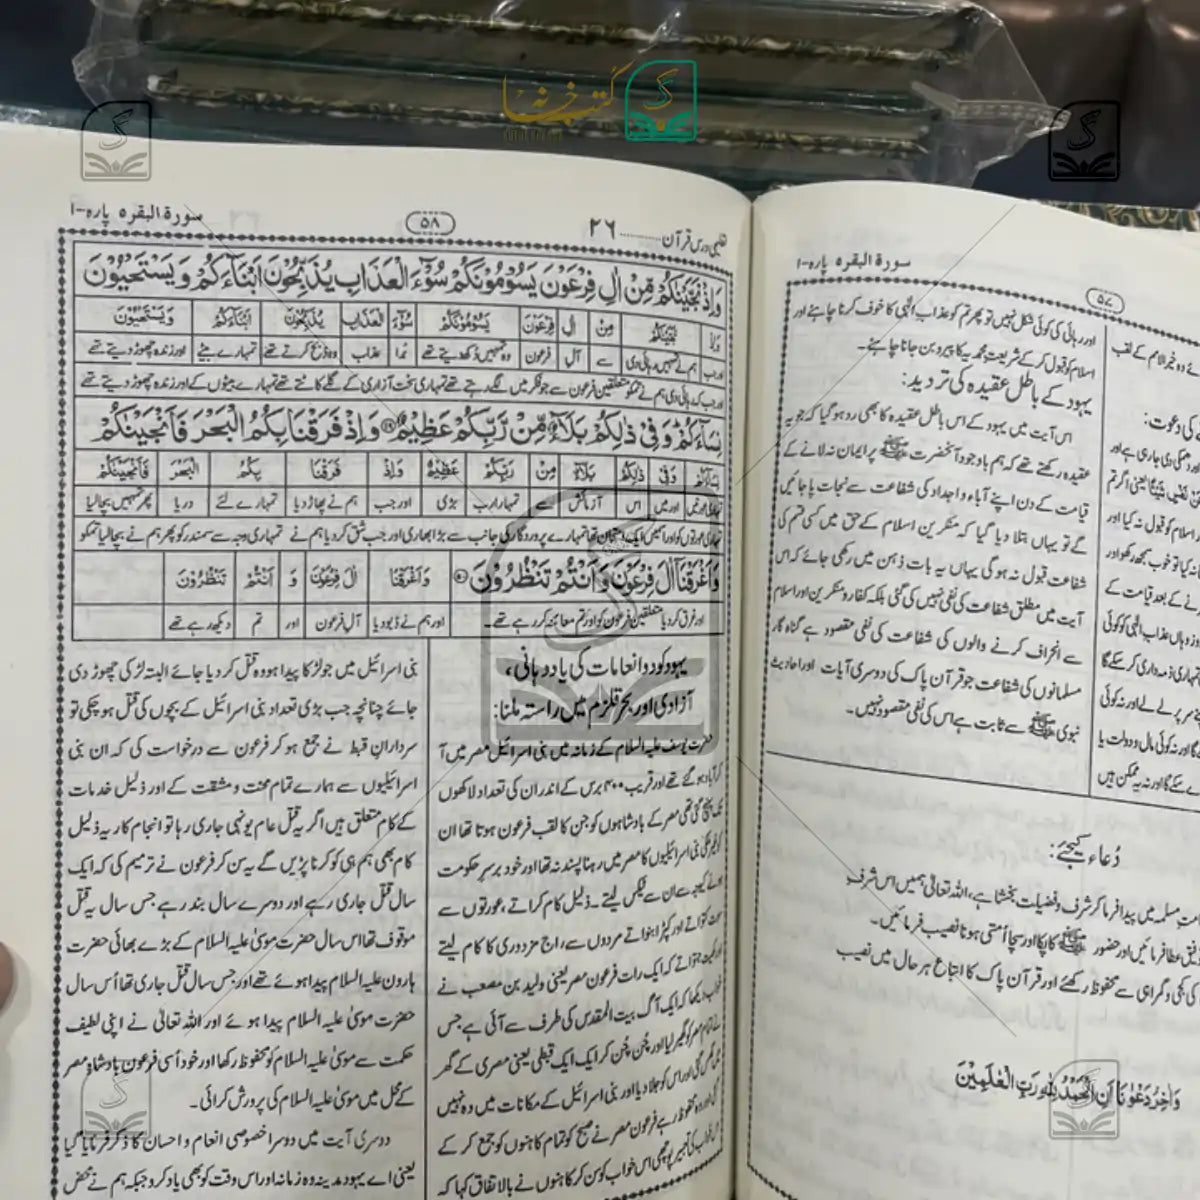 کتب خانہ
سورۃ البقرہ پارہ-۱
۵۷
اور رہائی کی کوئی شکل نہیں تو پھر تم کو عذاب الٰہی کا خوف کرنا چاہئے اور
اسلام کو قبول کر کے شریعت محمدیہ کا پیرو بن جانا چاہئے۔
یہود کے باطل عقیدہ کی تردید:
اس آیت میں یہود کے اس باطل عقیدہ کا بھی رد ہو گیا کہ جو یہ
عقیدہ رکھتے تھے کہ ہم باوجود آنحضرت ﷺ پر ایمان نہ لانے کے
قیامت کے دن اپنے آباء و اجداد کی شفاعت سے نجات پا جائیں
گے تو یہاں بتلا دیا گیا کہ منکرین اسلام کے حق میں کسی قسم کی
شفاعت قبول نہ ہوگی یہاں یہ بات ذہن میں رکھی جائے کہ اس
آیت میں مطلق شفاعت کی نفی نہیں کی گئی بلکہ کفار و منکرین اور اسلام
سے انحراف کرنے والوں کی شفاعت کی نفی مقصود ہے گناہ گار
مسلمانوں کی شفاعت جو قرآن پاک کی دوسری آیات اور احادیث
نبوی ﷺ سے ثابت ہے اس کی نفی مقصود نہیں۔
دُعاء کیجئے:
مت مسلمہ میں پیدا فرما کر شرف و فضیلت بخشا ہے، اللہ تعالیٰ ہمیں اس شرف
عطا فرمائیں اور حضور ﷺ کا پکا اور سچا اُمتی ہونا نصیب فرمائیں۔
کی کجی و گمراہی سے محفوظ رکھے اور قرآن پاک کا اتباع ہر حال میں نصیب
وَاٰخِرُ دَعْوٰنَا اَنِ الْحَمْدُ لِلّٰهِ رَبِّ الْعٰلَمِيْنَ
تعلیمی درس قرآن.........۲۶
۵۸
سورۃ البقرہ پارہ-۱
وَاِذْ نَجَّيْنٰكُمْ مِّنْ اٰلِ فِرْعَوْنَ يَسُوْمُوْنَكُمْ سُوْٓءَ الْعَذَابِ يُذَبِّحُوْنَ اَبْنَآءَكُمْ وَيَسْتَحْيُوْنَ
وَاِذْ نَجَّيْنٰكُمْ مِنْ اٰلِ فِرْعَوْنَ يَسُوْمُوْنَكُمْ سُوْٓءَ الْعَذَابِ يُذَبِّحُوْنَ اَبْنَآءَكُمْ وَيَسْتَحْيُوْنَ
اور جب ہم نے تمہیں رہائی دی سے آل فرعون وہ تمہیں دکھ دیتے تھے بُرا عذاب وہ ذبح کرتے تھے تمہارے بیٹے اور زندہ چھوڑ دیتے تھے
اور جب کہ رہائی دی ہم نے تم کو متعلقین فرعون سے جو فکر میں لگے رہتے تھے تمہاری سخت آزاری کے گلے کاٹتے تھے تمہارے بیٹوں کے اور زندہ چھوڑ دیتے تھے
نِسَآءَكُمْ وَفِيْ ذٰلِكُمْ بَلَآءٌ مِّنْ رَّبِّكُمْ عَظِيْمٌ وَاِذْ فَرَقْنَا بِكُمُ الْبَحْرَ فَاَنْجَيْنٰكُمْ
نِسَآءَكُمْ وَفِيْ ذٰلِكُمْ بَلَآءٌ مِنْ رَّبِّكُمْ عَظِيْمٌ وَاِذْ فَرَقْنَا بِكُمُ الْبَحْرَ فَاَنْجَيْنٰكُمْ
تمہاری عورتیں اور میں اس آزمائش سے تمہارا رب بڑی اور جب ہم نے پھاڑ دیا تمہارے لئے دریا پھر تمہیں بچا لیا
تمہاری عورتوں کو اور اس میں ایک امتحان تھا تمہارے پروردگار کی جانب سے بڑا بھاری اور جب شق کر دیا ہم نے تمہاری وجہ سے سمندر کو پھر ہم نے بچا لیا تم کو
وَاَغْرَقْنَآ اٰلَ فِرْعَوْنَ وَاَنْتُمْ تَنْظُرُوْنَ وَاَغْرَقْنَا اٰلَ فِرْعَوْنَ وَ اَنْتُمْ تَنْظُرُوْنَ
اور غرق کر دیا متعلقین فرعون کو اور تم معائنہ کر رہے تھے۔ اور ہم نے ڈبو دیا آل فرعون اور تم دیکھ رہے تھے
یہود کو دو انعامات کی یاد دہانی،
آزادی اور بحر قلزم میں راستہ ملنا:
حضرت یوسف علیہ السلام کے زمانہ میں بنی اسرائیل مصر میں آ
کر آباد ہو گئے تھے اور قریب ۴۰۰ برس کے اندر ان کی تعداد لاکھوں
تک پہنچ گئی تھی مصر کے بادشاہوں کو جن کا لقب فرعون ہوتا تھا ان
غیر ملکی بنی اسرائیلیوں کا مصر میں رہنا پسند نہ تھا اور خود برسر حکومت
ہونے کیوجہ سے ان سے ٹیکس لیتے۔ ذلیل کام کراتے، عورتوں سے
سوت کتواتے اور کپڑا بنواتے مردوں سے، راج مزدوری کا کام لیتے
اور کھیت جتواتے کہ ایک رات فرعون مصر یعنی ولید بن مصعب نے
خواب دیکھا کہ ایک آگ بیت المقدس کی طرف سے آئی ہے جس
نے تمام مصر کو گھیر لیا اور چُن چُن کر ایک ایک قبطی یعنی مصری کے گھر
میں گھس گئی اور اس کو جلا دیا اور بنی اسرائیل کے مکانات میں وہ نہیں
گئی اور وہ محفوظ رہے فرعون مصر نے صبح کو تمام کاہنوں کو جمع کر کے
اس خواب کی تعبیر پوچھی اس خواب کو سن کر کاہنوں نے بالاتفاق کہا کہ
بنی اسرائیل میں جو لڑکا پیدا ہو وہ قتل کر دیا جائے البتہ لڑکی چھوڑ دی
جائے چنانچہ جب بڑی تعداد بنی اسرائیل کے بچوں کی قتل ہو چکی تو
سرداران قبط نے جمع ہو کر فرعون سے درخواست کی کہ ان بنی
اسرائیلیوں سے ہمارے تمام محنت و مشقت کے اور ذلیل خدمات
کے کام متعلق ہیں اگر یہ قتل عام یونہی جاری رہا تو انجام کار یہ ذلیل
کام بھی ہم ہی کو کرنا پڑیں گے یہ سن کر فرعون نے ترمیم کی کہ ایک
سال قتل جاری رہے اور دوسرے سال بند رہے جس سال یہ قتل
موقوف تھا اس سال حضرت موسیٰ علیہ السلام کے بڑے بھائی حضرت
ہارون علیہ السلام پیدا ہوئے تھے اور جس سال قتل جاری تھا اُس سال
حضرت موسیٰ علیہ السلام پیدا ہوئے اور اللہ تعالیٰ نے اپنی لطیف
حکمت سے موسیٰ علیہ السلام کو محفوظ رکھا اور خود اُسی فرعون بادشاہ مصر
کے محل میں موسیٰ علیہ السلام کی پرورش کرائی۔
دوسری آیت میں دوسرا خصوصی انعام و احسان کا ذکر فرمایا گیا
یعنی اے یہود مدینہ وہ زمانہ اور اس وقت کو بھی یاد کرو جبکہ ہم نے محض